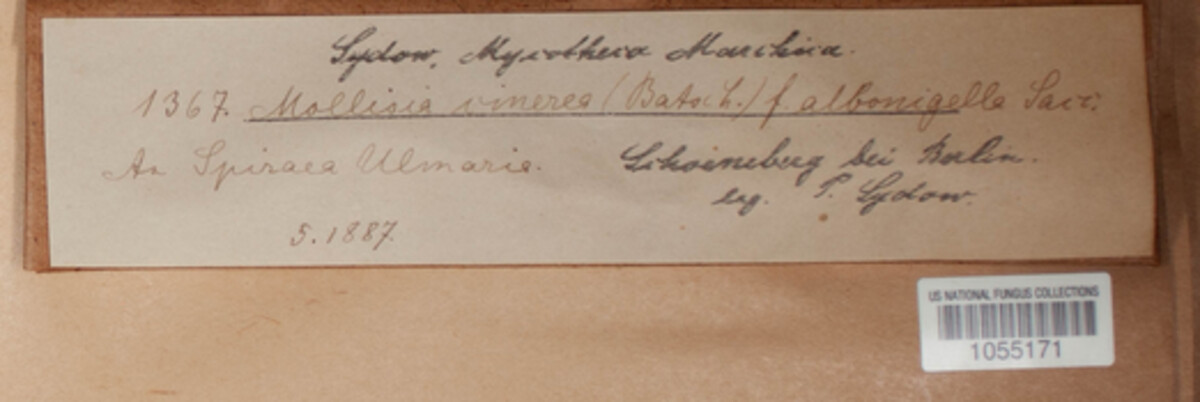 Sydow, Mycotheca Marchica.
1367. Mollisia cinerea (Batsch.) f. albonigella Sacc.
An Spiraea Ulmaria.
Schoeneberg bei Berlin.
leg. P. Sydow.
5.1887.
US NATIONAL FUNGUS COLLECTIONS
1055171